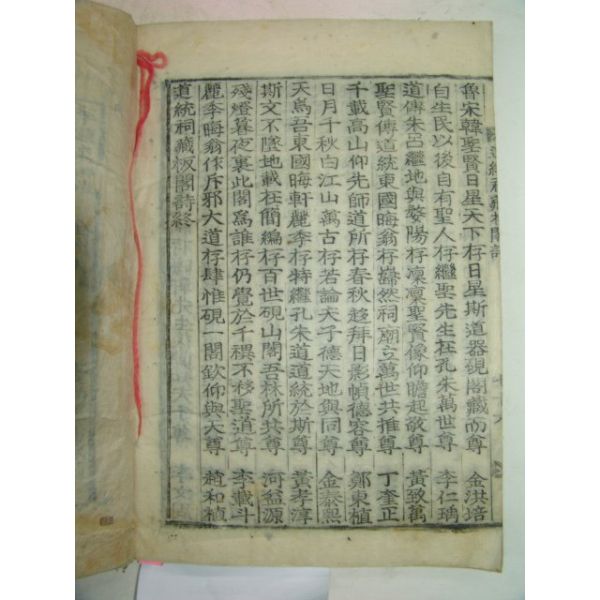 魯宋韓聖賢日星天下存日星斯道器硯閣藏而尊 金洪培
自生民以後自有聖人存繼聖先生在孔朱萬世尊 李仁瑀
道傳朱呂繼地與婺陽存凜凜聖賢像仰瞻起敬尊 黃致萬
聖賢傳道統東國晦翁存巋然祠廟立萬世共推尊 丁奎正
千載高山仰先師道所存春秋趍拜日影幀德容尊 鄭東植
日月千秋白江山萬古存若論夫子德天地與同尊 金泰熙
天爲吾東國晦軒麗季存特繼孔朱道道統於斯尊 黃孝淳
斯文不墜地載在簡編存百世硯山閣吾林所共尊 河益源
殘燈暮夜裏此閣爲誰存仍覺於千禩不移聖道尊 李載斗
麗季晦翁作斥邪大道存肆惟硯一閣欽仰與天尊 趙和植
道統祠藏板閣詩終